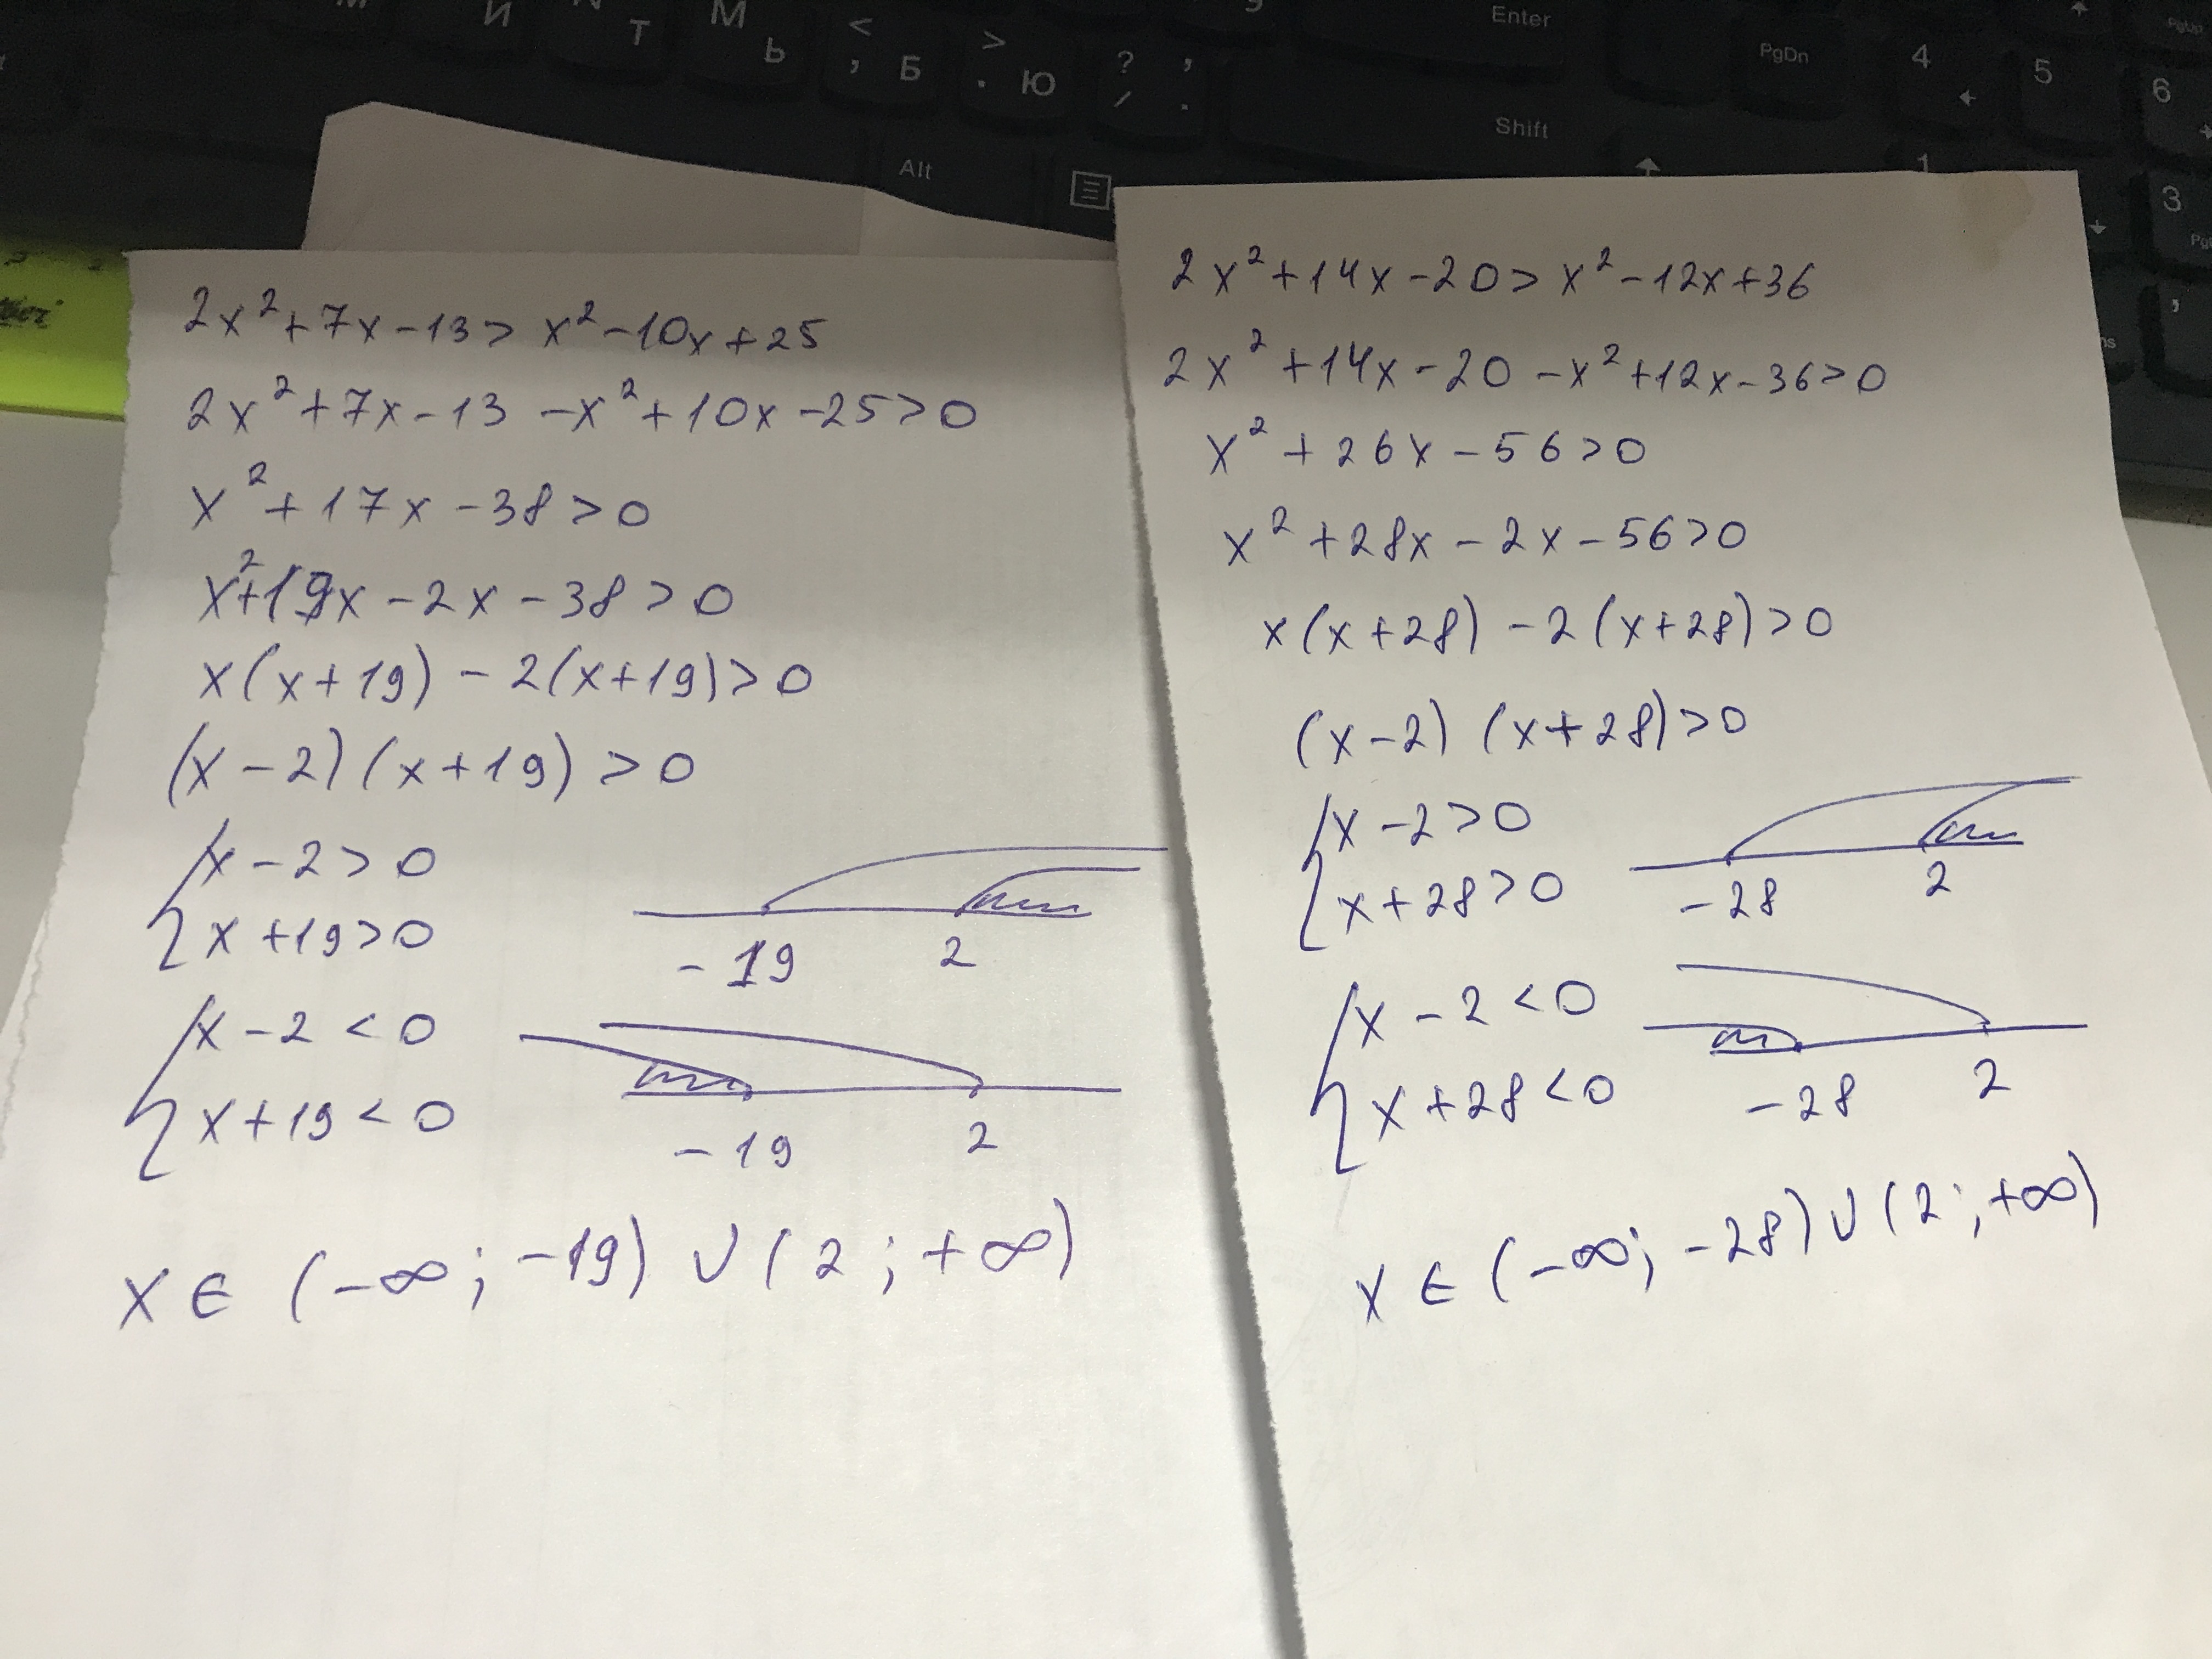 И
Т
М
Ь
<
,
Б
>
.
Ю
?
,
/
.
Enter
PgDn
4
5
6
Shift
Alt
1
3
,
2x²+7x-13> x²-10x+25
2x²+7x-13 -x²+10x-25>0
x²+17x-38>0
x²+19x-2x-38>0
x(x+19)-2(x+19)>0
(x-2)(x+19)>0
{x-2>0
x+19>0
-19 2
{x-2<0
x+19<0
-19 2
x∈(-∞;-19)∪(2;+∞)
2x²+14x-20> x²-12x+36
2x²+14x-20-x²+12x-36>0
x²+26x-56>0
x²+28x-2x-56>0
x(x+28)-2(x+28)>0
(x-2)(x+28)>0
{x-2>0
x+28>0
-28 2
{x-2<0
x+28<0
-28 2
x∈(-∞;-28)∪(2;+∞)